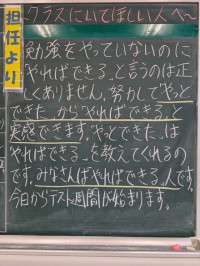 担任より
クラスにいてほしい人へ〜
勉強をやっていないのに
「やればできる」と言うのは正
しくありません。努力して"やっと
できた"から"やればできる"と
実感できます。"やっとできた"は
"やればできる"を教えてくれるの
です。みなさんは"やればできる"人です。
今日からテスト週間が始まります。